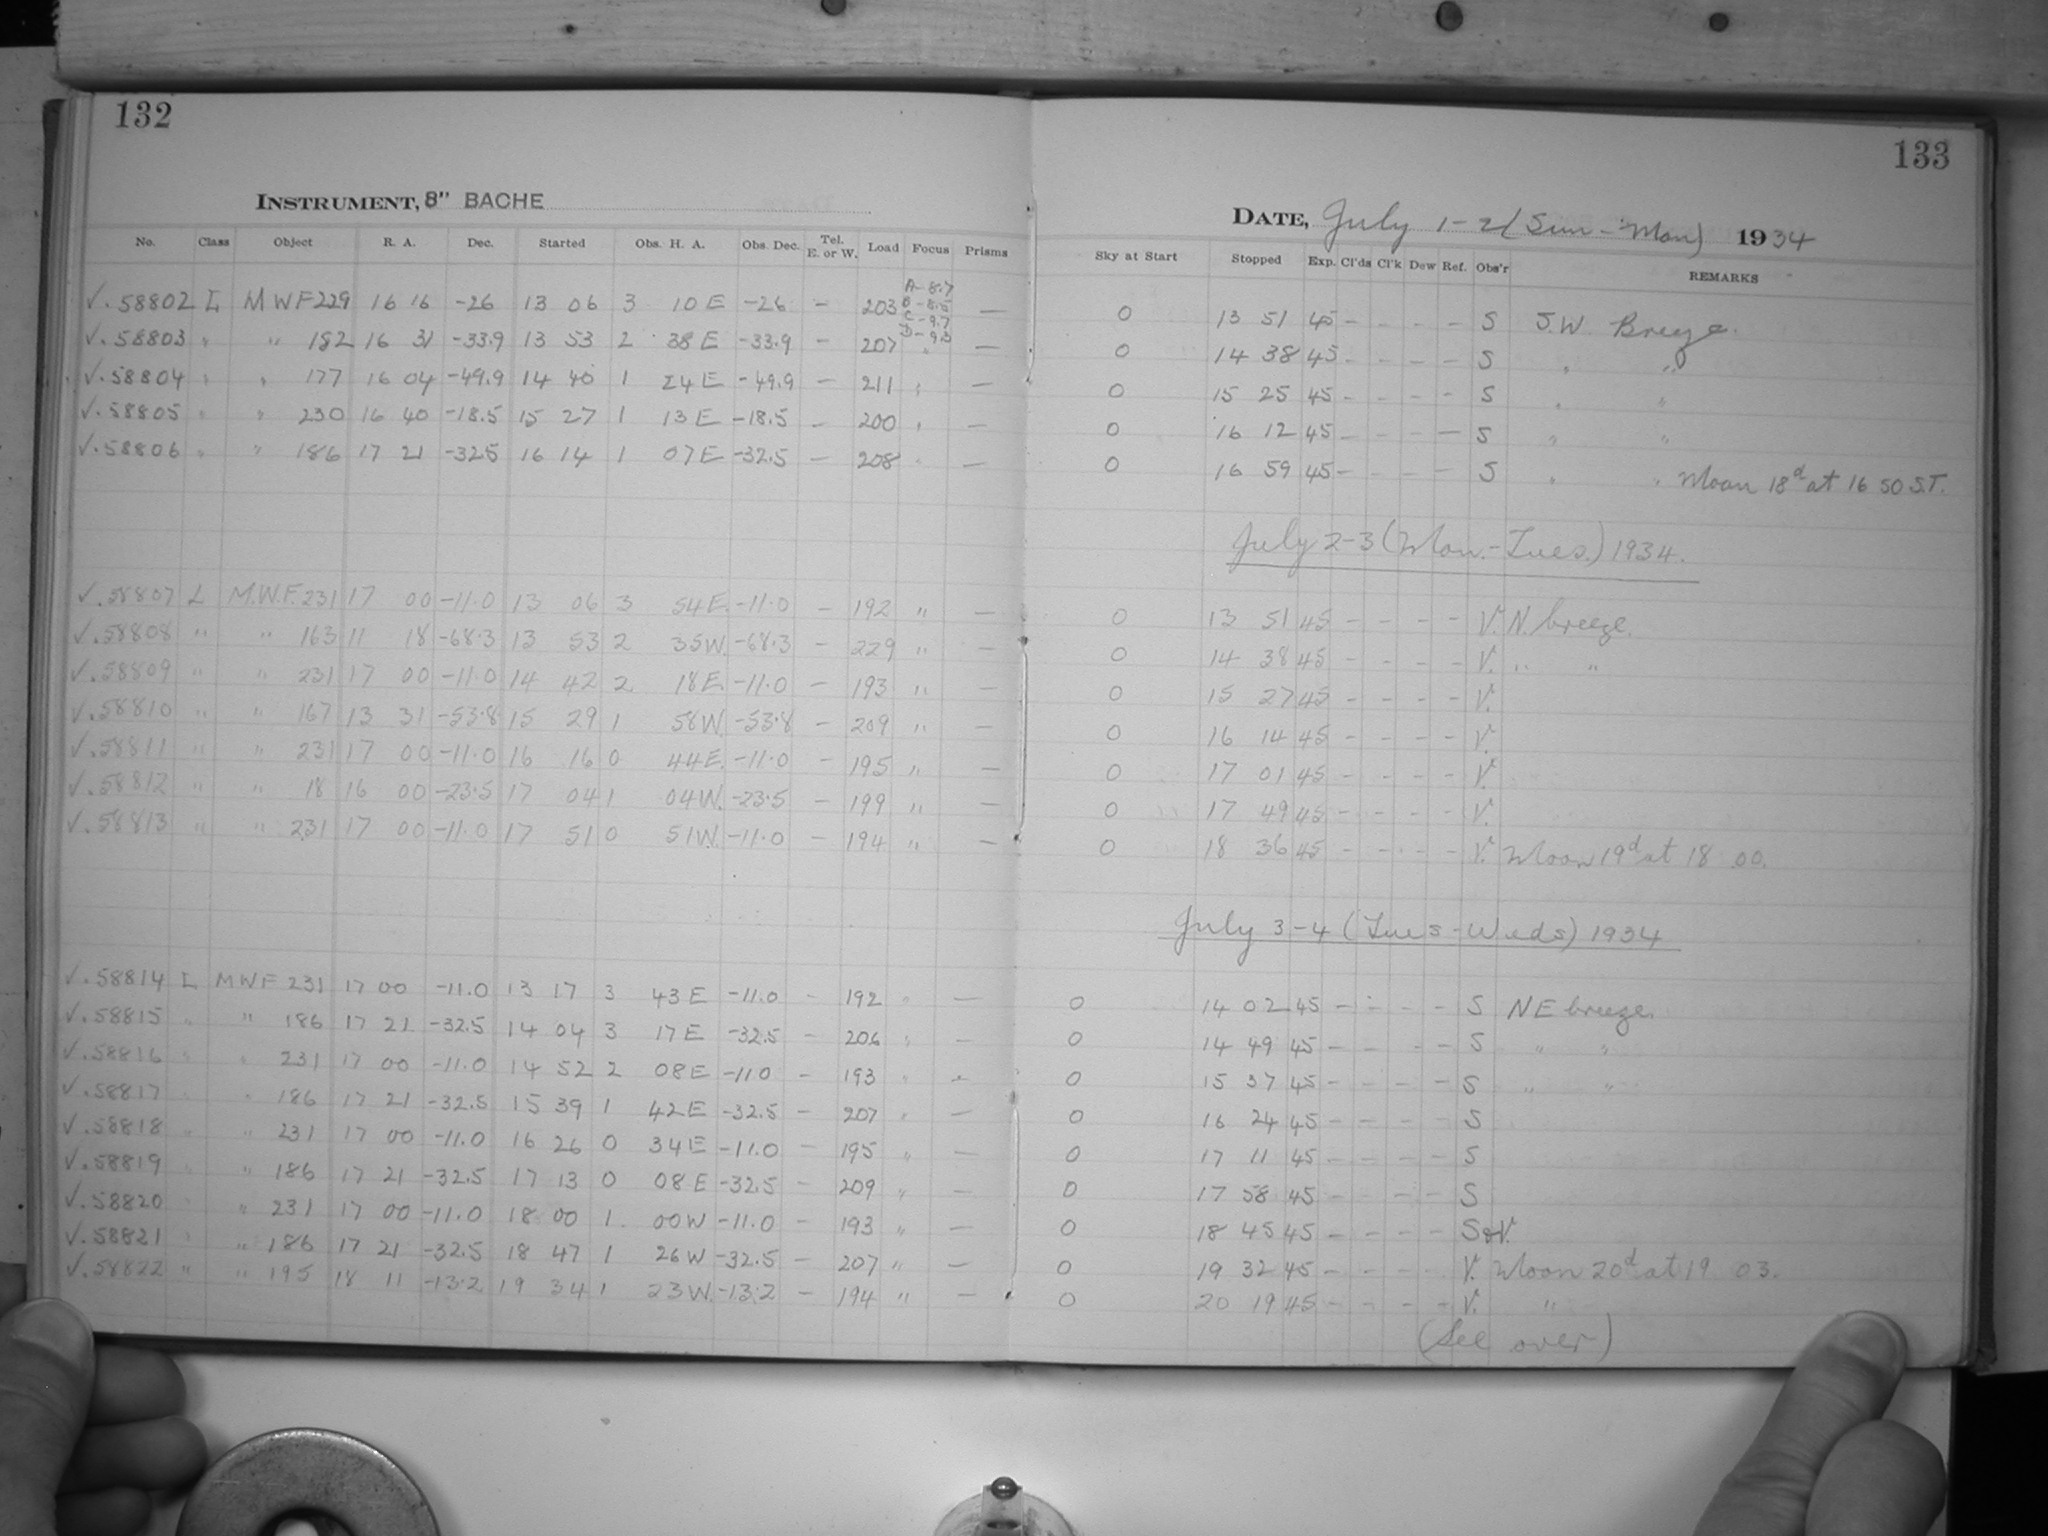 132
133
INSTRUMENT, 8" BACHE
DATE, July 1-2 (Sun - Mon) 1934
No. Class Object R. A. Dec. Started Obs. H. A. Obs. Dec. Tel. E. or W. Load Focus Prisms Sky at Start Stopped Exp. Cl'ds Cl'k Dew Ref. Obs'r REMARKS
A- 8.7
B- 8.5
C- 9.7
D- 9.3
√. 58802 L MWF 229 16 16 -26 13 06 3 10 E -26 - 203 — 0 13 51 45 - - - - S S.W. Breeze.
√. 58803 " " 182 16 31 -33.9 13 53 2 38 E -33.9 - 207 " — 0 14 38 45 - - - - S " "
√. 58804 " " 177 16 04 -49.9 14 40 1 24 E -49.9 - 211 " — 0 15 25 45 - - - - S " "
√. 58805 " " 230 16 40 -18.5 15 27 1 13 E -18.5 - 200 " — 0 16 12 45 - - - - S " "
√. 58806 " " 186 17 21 -32.5 16 14 1 07 E -32.5 - 208 " — 0 16 59 45 - - - - S " " Moon 18d at 16 50 S.T.
July 2-3 (Mon.-Tues.) 1934.
√. 58807 L M.W.F. 231 17 00 -11.0 13 06 3 54 E. -11.0 - 192 " — 0 13 51 45 - - - - V. N. breeze.
√. 58808 " " 163 11 18 -68.3 13 53 2 35 W. -68.3 - 229 " — 0 14 38 45 - - - - V. " "
√. 58809 " " 231 17 00 -11.0 14 42 2 18 E. -11.0 - 193 " — 0 15 27 45 - - - - V.
√. 58810 " " 167 13 31 -53.8 15 29 1 58 W. -53.8 - 209 " — 0 16 14 45 - - - - V.
√. 58811 " " 231 17 00 -11.0 16 16 0 44 E. -11.0 - 195 " — 0 17 01 45 - - - - V.
√. 58812 " " 18 16 00 -23.5 17 04 1 04 W. -23.5 - 199 " — 0 17 49 45 - - - - V.
√. 58813 " " 231 17 00 -11.0 17 51 0 51 W. -11.0 - 194 " — 0 18 36 45 - - - - V. Moon 19d at 18 00.
July 3-4 (Tues - Weds) 1934
√. 58814 L MWF 231 17 00 -11.0 13 17 3 43 E -11.0 - 192 " — 0 14 02 45 - - - - S NE breeze.
√. 58815 " " 186 17 21 -32.5 14 04 3 17 E -32.5 - 206 " — 0 14 49 45 - - - - S " "
√. 58816 " " 231 17 00 -11.0 14 52 2 08 E -11.0 - 193 " — 0 15 37 45 - - - - S " "
√. 58817 " " 186 17 21 -32.5 15 39 1 42 E -32.5 - 207 " — 0 16 24 45 - - - - S
√. 58818 " " 231 17 00 -11.0 16 26 0 34 E -11.0 - 195 " — 0 17 11 45 - - - - S
√. 58819 " " 186 17 21 -32.5 17 13 0 08 E -32.5 - 209 " — 0 17 58 45 - - - - S
√. 58820 " " 231 17 00 -11.0 18 00 1 00 W -11.0 - 193 " — 0 18 45 45 - - - - S&V.
√. 58821 " " 186 17 21 -32.5 18 47 1 26 W -32.5 - 207 " — 0 19 32 45 - - - - V. Moon 20d at 19 03.
√. 58822 " " 195 18 11 -13.2 19 34 1 23 W. -13.2 - 194 " — 0 20 19 45 - - - - V. "
(See over)